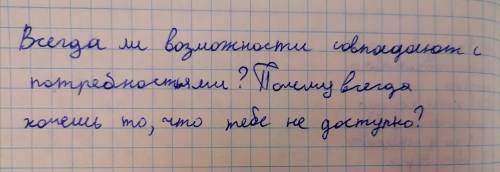 Всегда ли возможности совпадают с
потребностями? Почему всегда
хочешь то, что тебе не доступно?